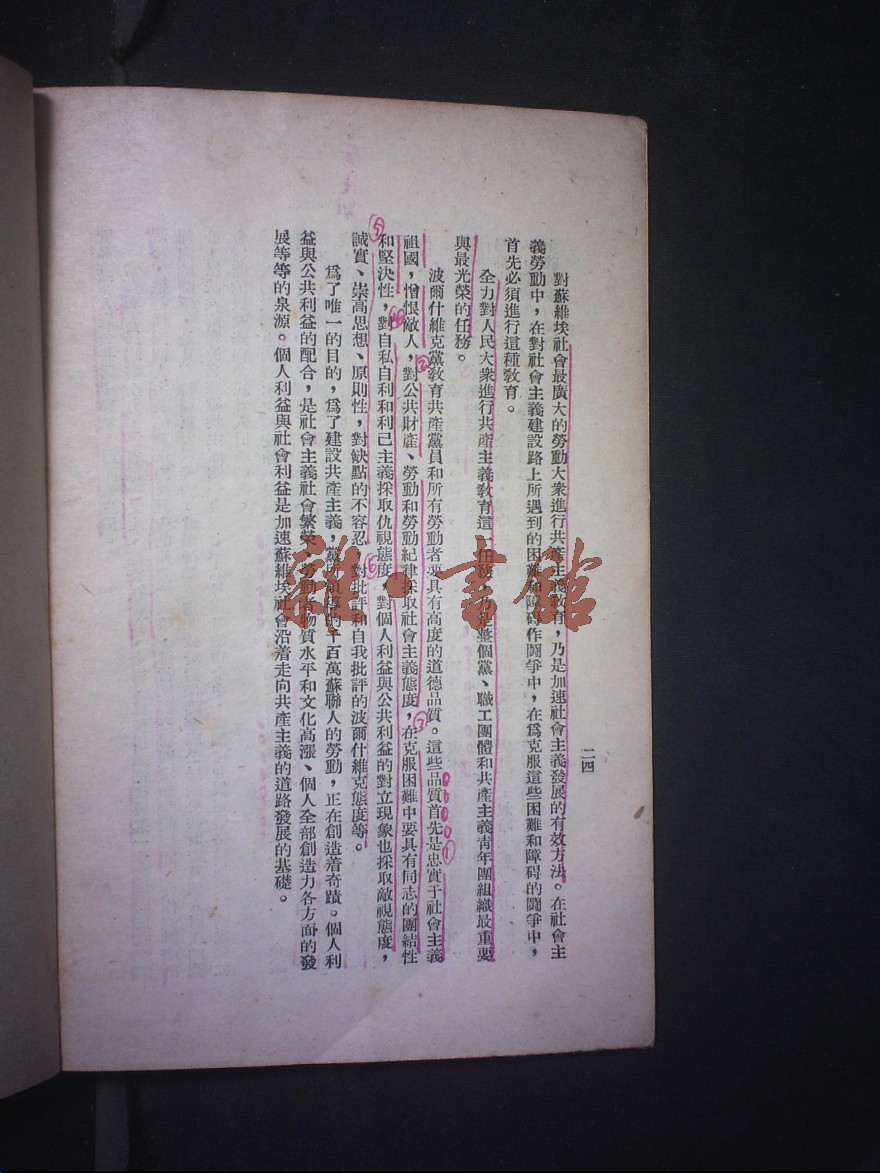 對蘇維埃社會最廣大的勞動大衆進行共產主義教育，乃是加速社會主義發展的有效方法。在社會主
義勞動中，在對社會主義建設路上所遇到的困難和障碍作鬪爭中，在爲克服這些困難和障碍的鬪爭中，
首先必須進行這種敎育。
全力對人民大衆進行共產主義敎育這一任務，乃是整個黨、職工團體和共產主義靑年團組織最重要
與最光榮的任務。
波爾什維克黨敎育共產黨員和所有勞動者要具有高度的道德品質。這些品質首先是忠實于社會主義
祖國，憎恨敵人，對公共財產、勞動和勞動紀律採取社會主義態度，在克服困難中要具有同志的團結性
和堅決性，對自私自利和利己主義採取仇視態度，對個人利益與公共利益的對立現象也採取敵視態度，
誠實、崇高思想、原則性，對缺點的不容忍，對批評和自我批評的波爾什維克態度等。
爲了唯一的目的，爲了建設共產主義，黨所領導的千百萬蘇聯人的勞動，正在創造着奇蹟。個人利
益與公共利益的配合，是社會主義社會繁榮、勞動者物質水平和文化高漲、個人全部創造力各方面的發
展等等的泉源。個人利益與社會利益是加速蘇維埃社會沿着走向共產主義的道路發展的基礎。
二四
①
②
③
⑤
⑥
雜·書館